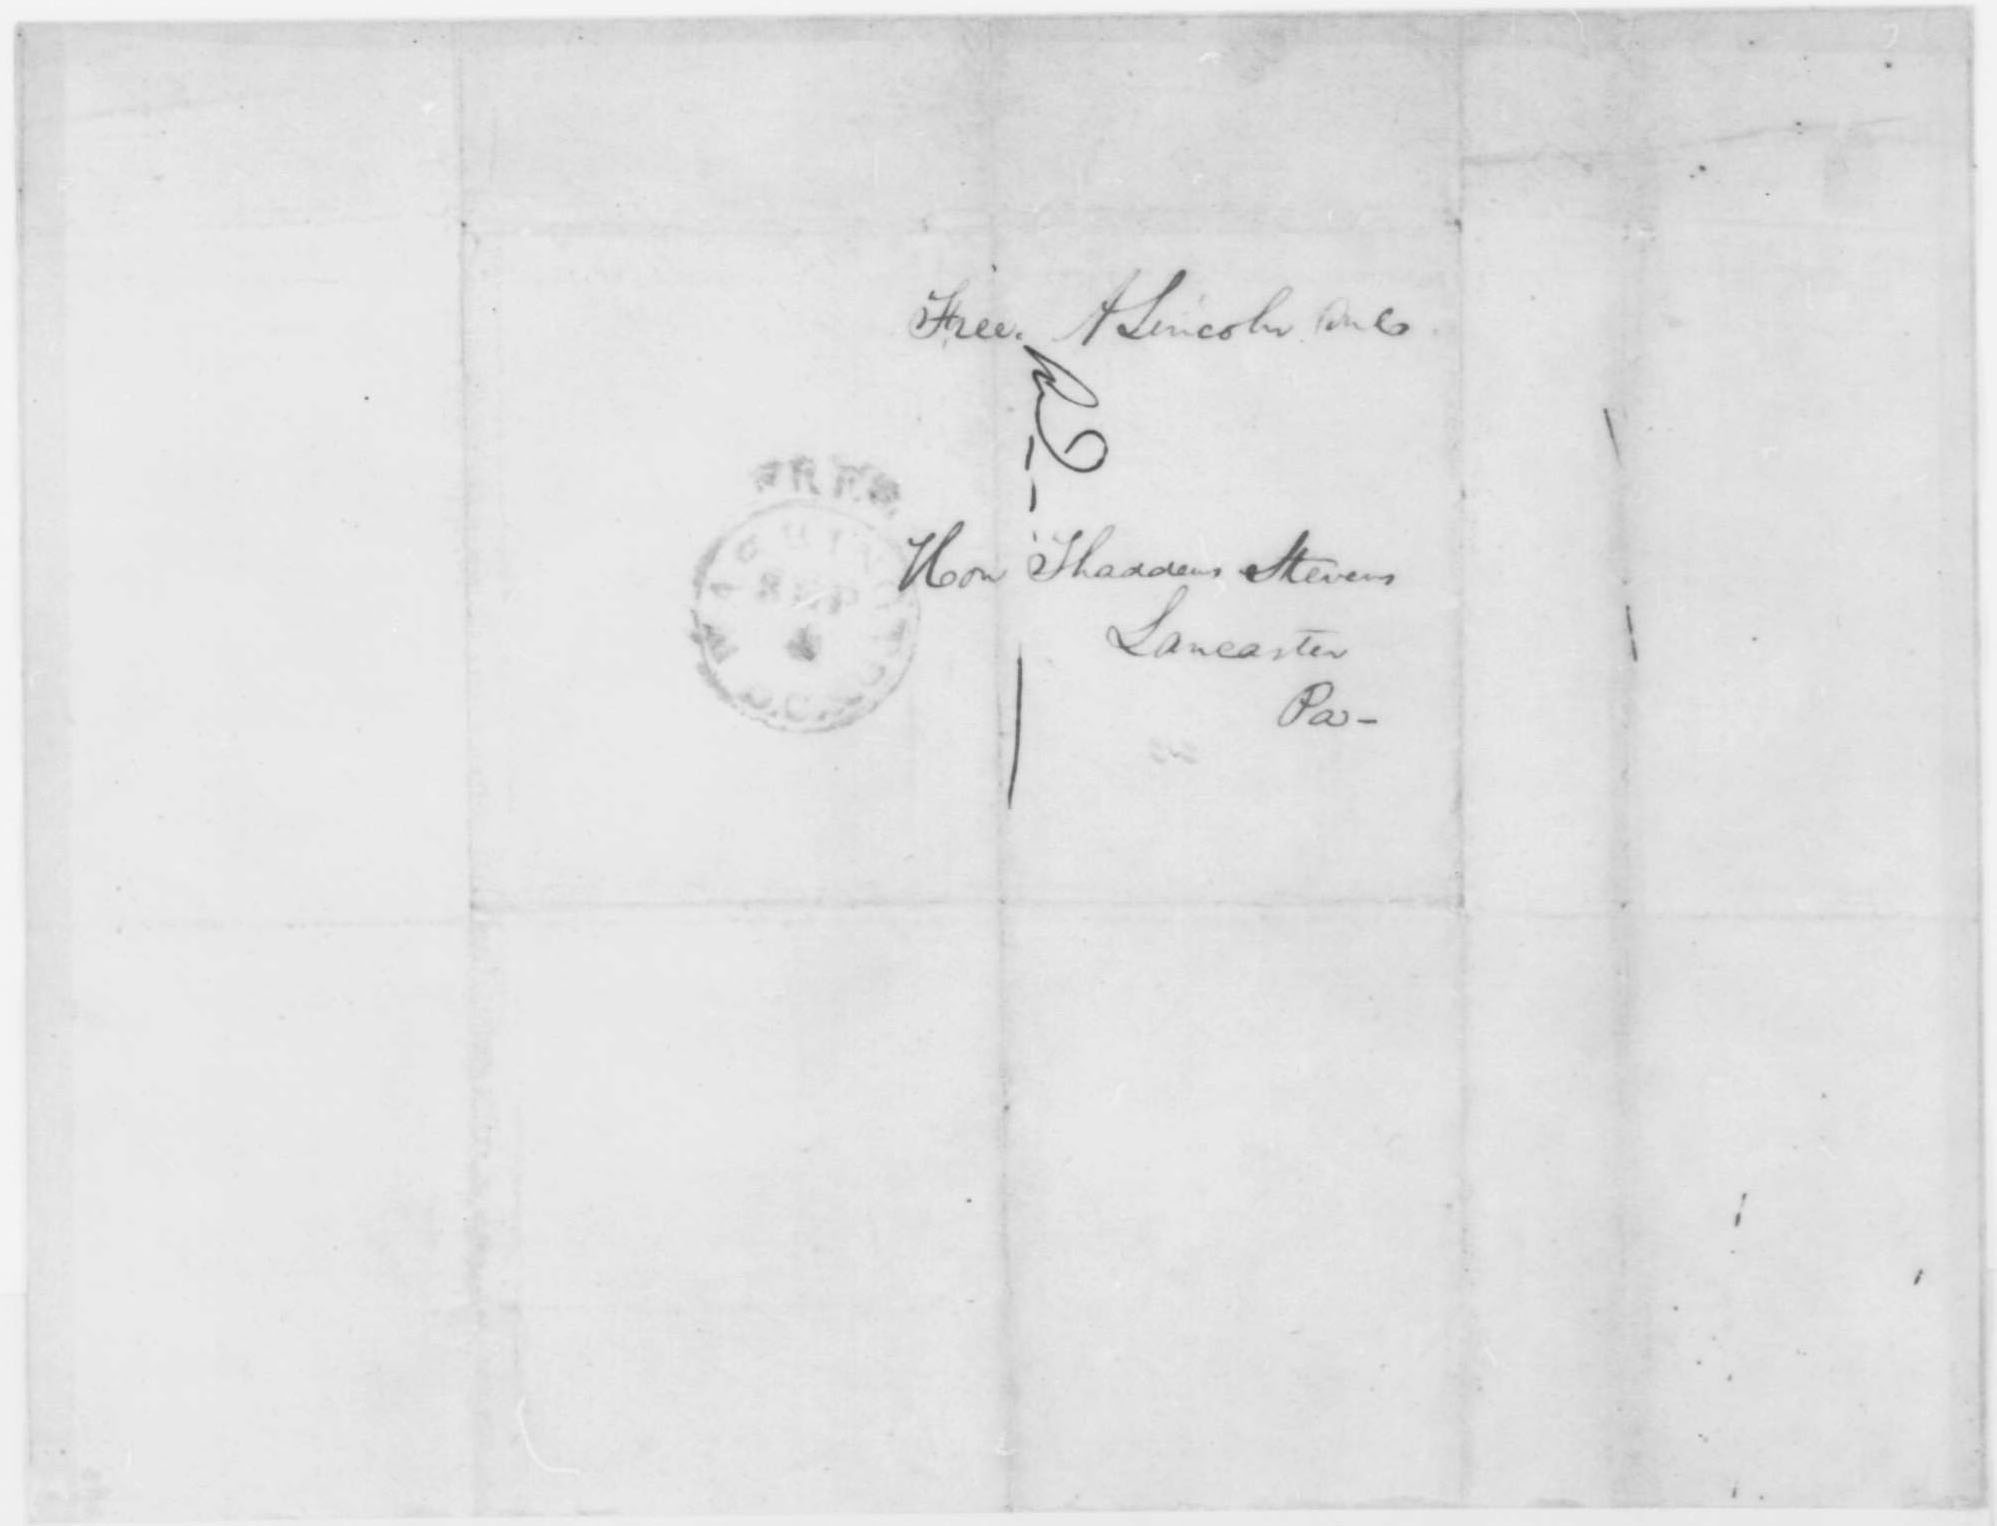 Free. A Lincoln M C
FREE.
Hon Thaddeus Stevens
WASHINGTON
SEP
Lancaster
D.C.
Pa-